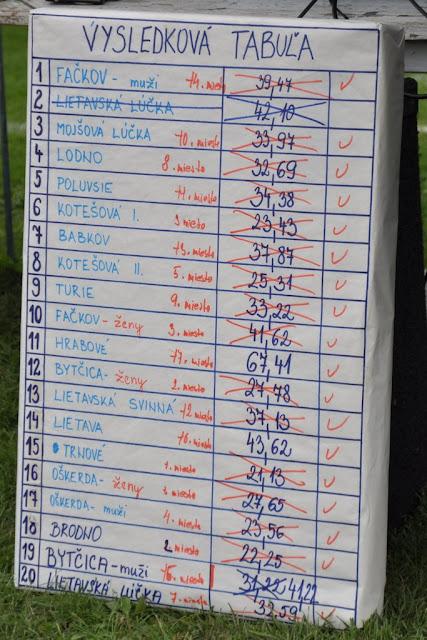 VÝSLEDKOVÁ TABUĽA
1 FAČKOV - muži 14. miesto 39,47
2 LIETAVSKÁ LÚČKA 42,10
3 MOJŠOVÁ LÚČKA 10. miesto 33,97
4 LODNO 8. miesto 32,69
5 POLUVSIE 11. miesto 34,38
6 KOTEŠOVÁ I. 3 miesto 23,43
7 BABKOV 13. miesto 37,87
8 KOTEŠOVÁ II. 5. miesto 25,31
9 TURIE 9. miesto 33,22
10 FAČKOV - ženy 3. miesto 41,62
11 HRABOVÉ 17. miesto 67,41
12 BYTČICA - ženy 2. miesto 27,78
13 LIETAVSKÁ SVINNÁ 12 miesto 37,13
14 LIETAVA 16. miesto 43,62
15 TRNOVÉ 1. miesto 21,13
16 OŠKERDA - ženy 1. miesto 27,65
17 OŠKERDA - muži 4. miesto 23,56
18 BRODNO 2 miesto 22,25
19 BYTČICA - muži 15. miesto 41,22
20 LIETAVSKÁ - LÚČKA 7. miesto 32,59